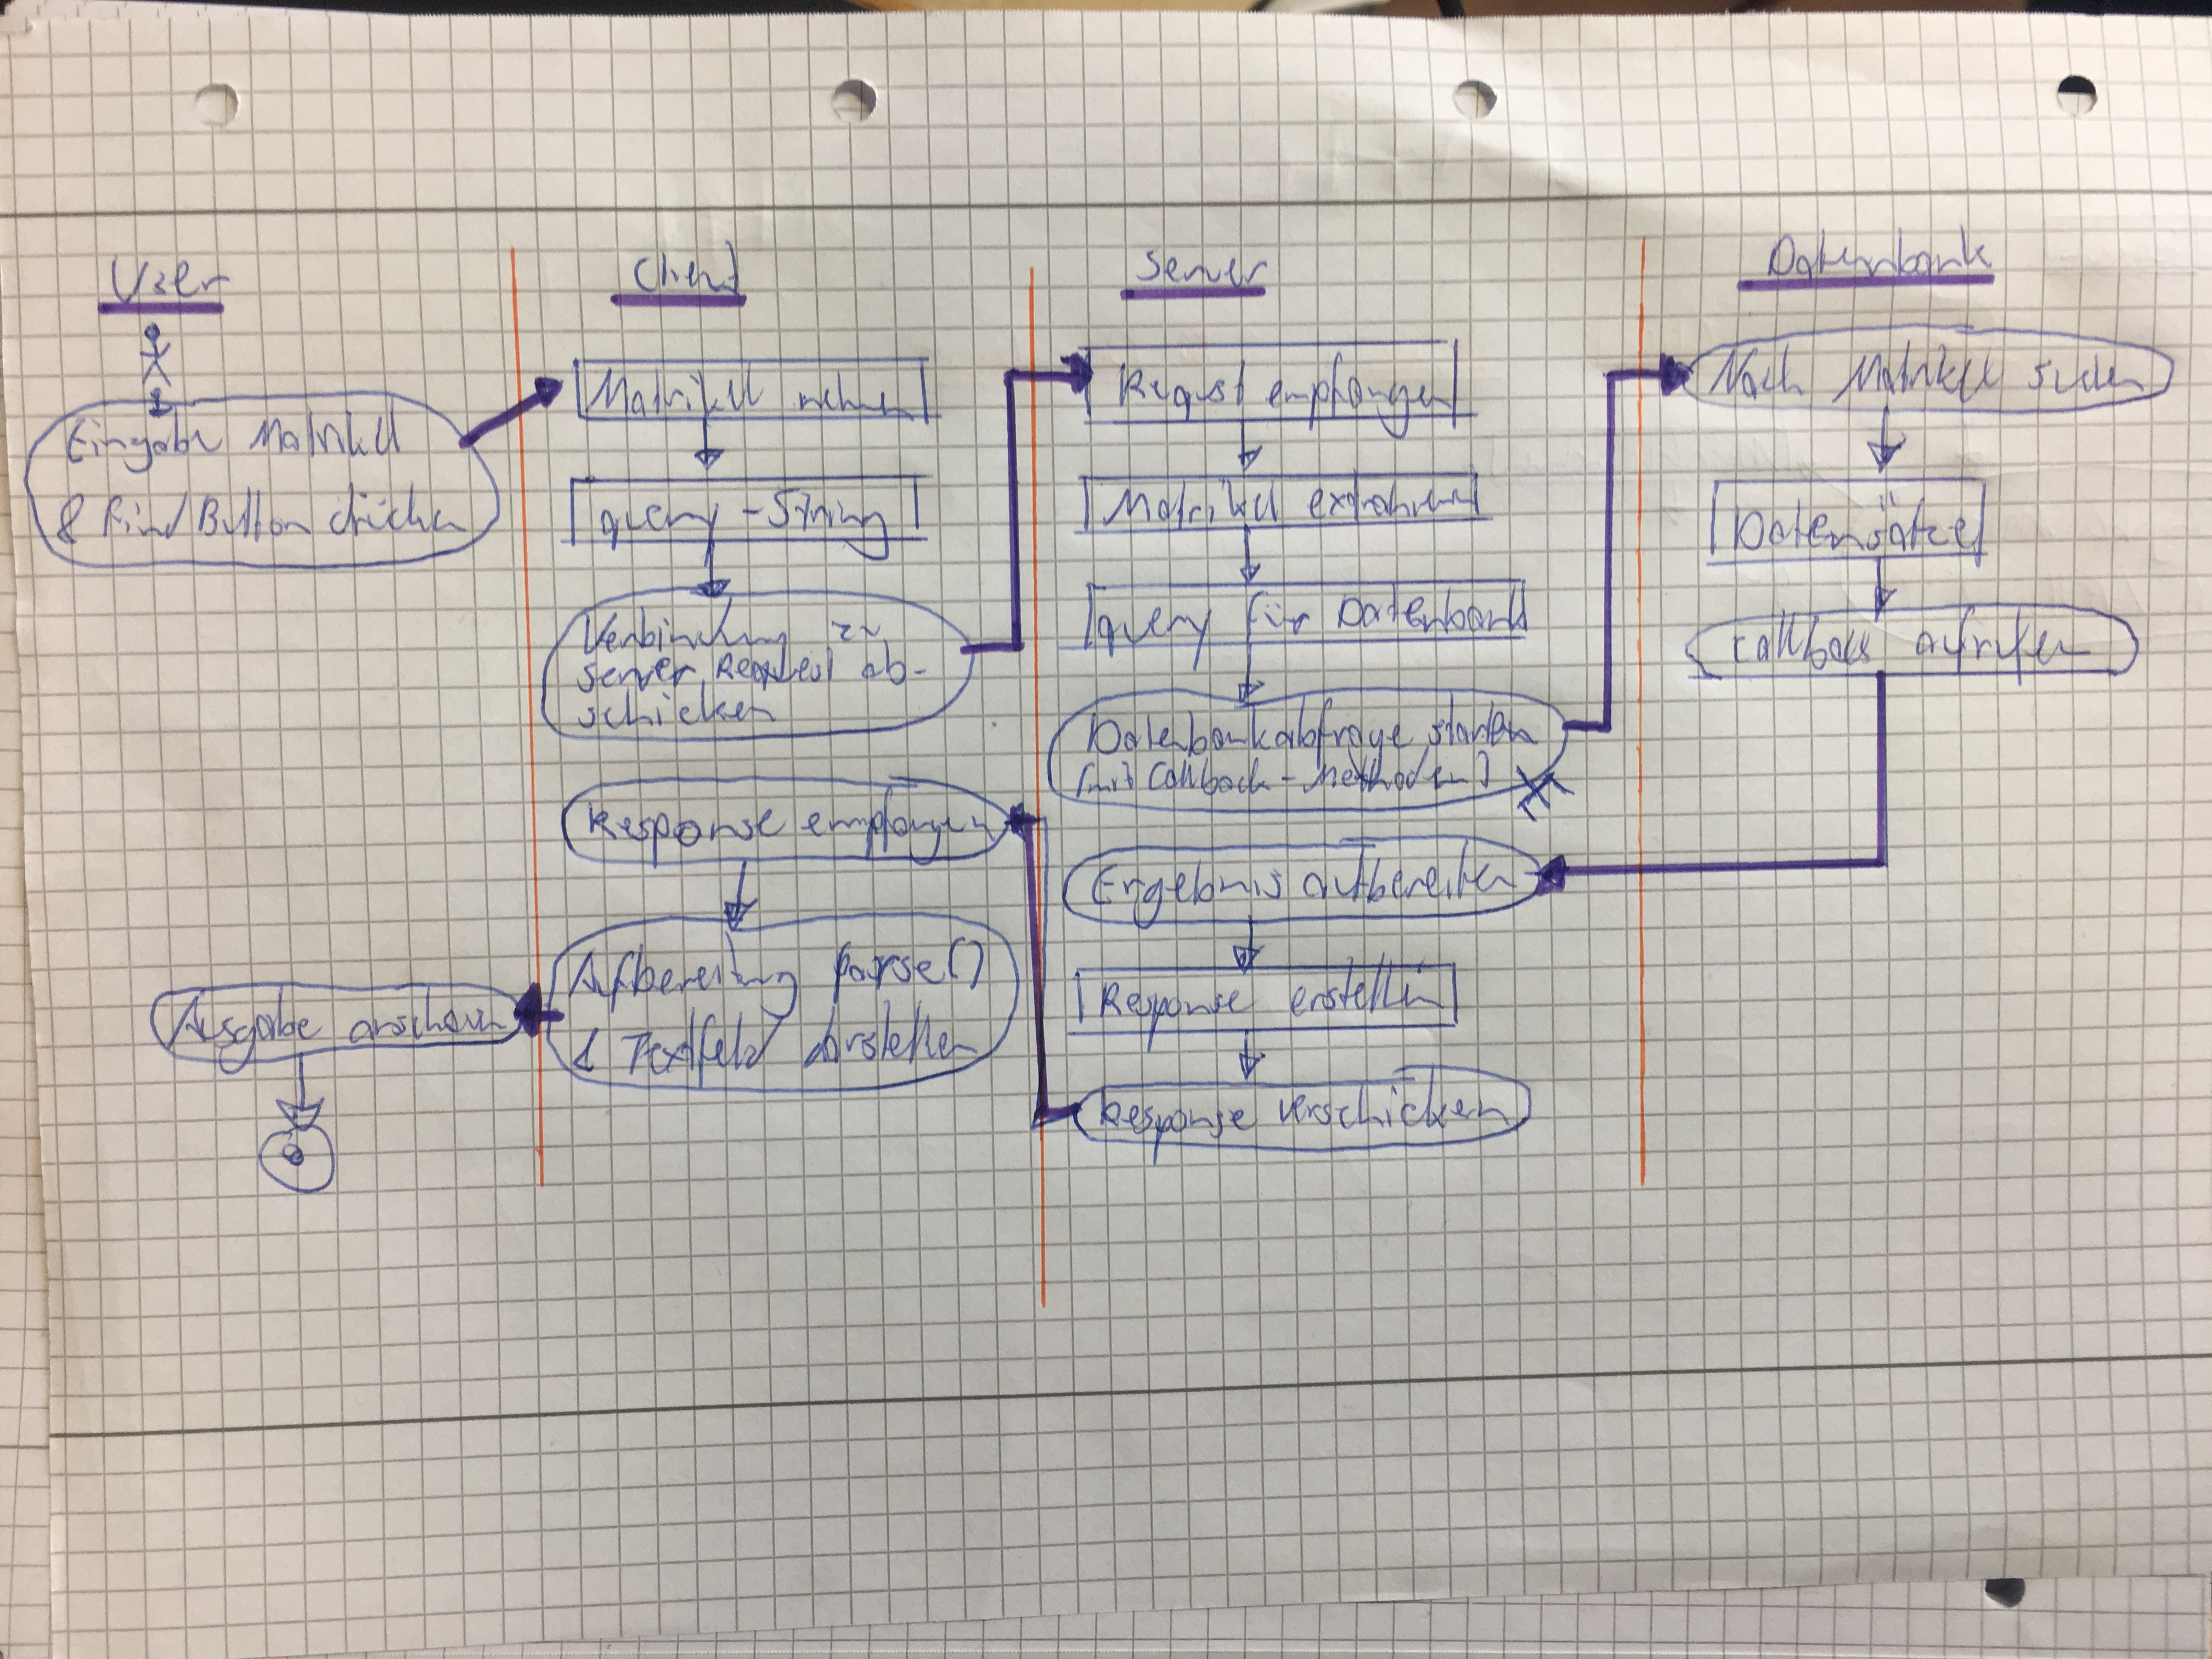 User
Eingabe Matrikel
& Find Button drücken
Ausgabe anschauen
Client
Matrikel nehmen
query-String
Verbindung zu
Server, Request ab-
schicken
Response empfangen
Aufbereitung parse()
& Textfeld darstellen
Server
Request empfangen
Matrikel extrahieren
query für Datenbank
Datenbankabfrage starten
(mit Callback-Methoden)
Ergebnis aufbereiten
Response erstellen
Response verschicken
Datenbank
Nach Matrikel suchen
Datensätze
Callback aufrufen